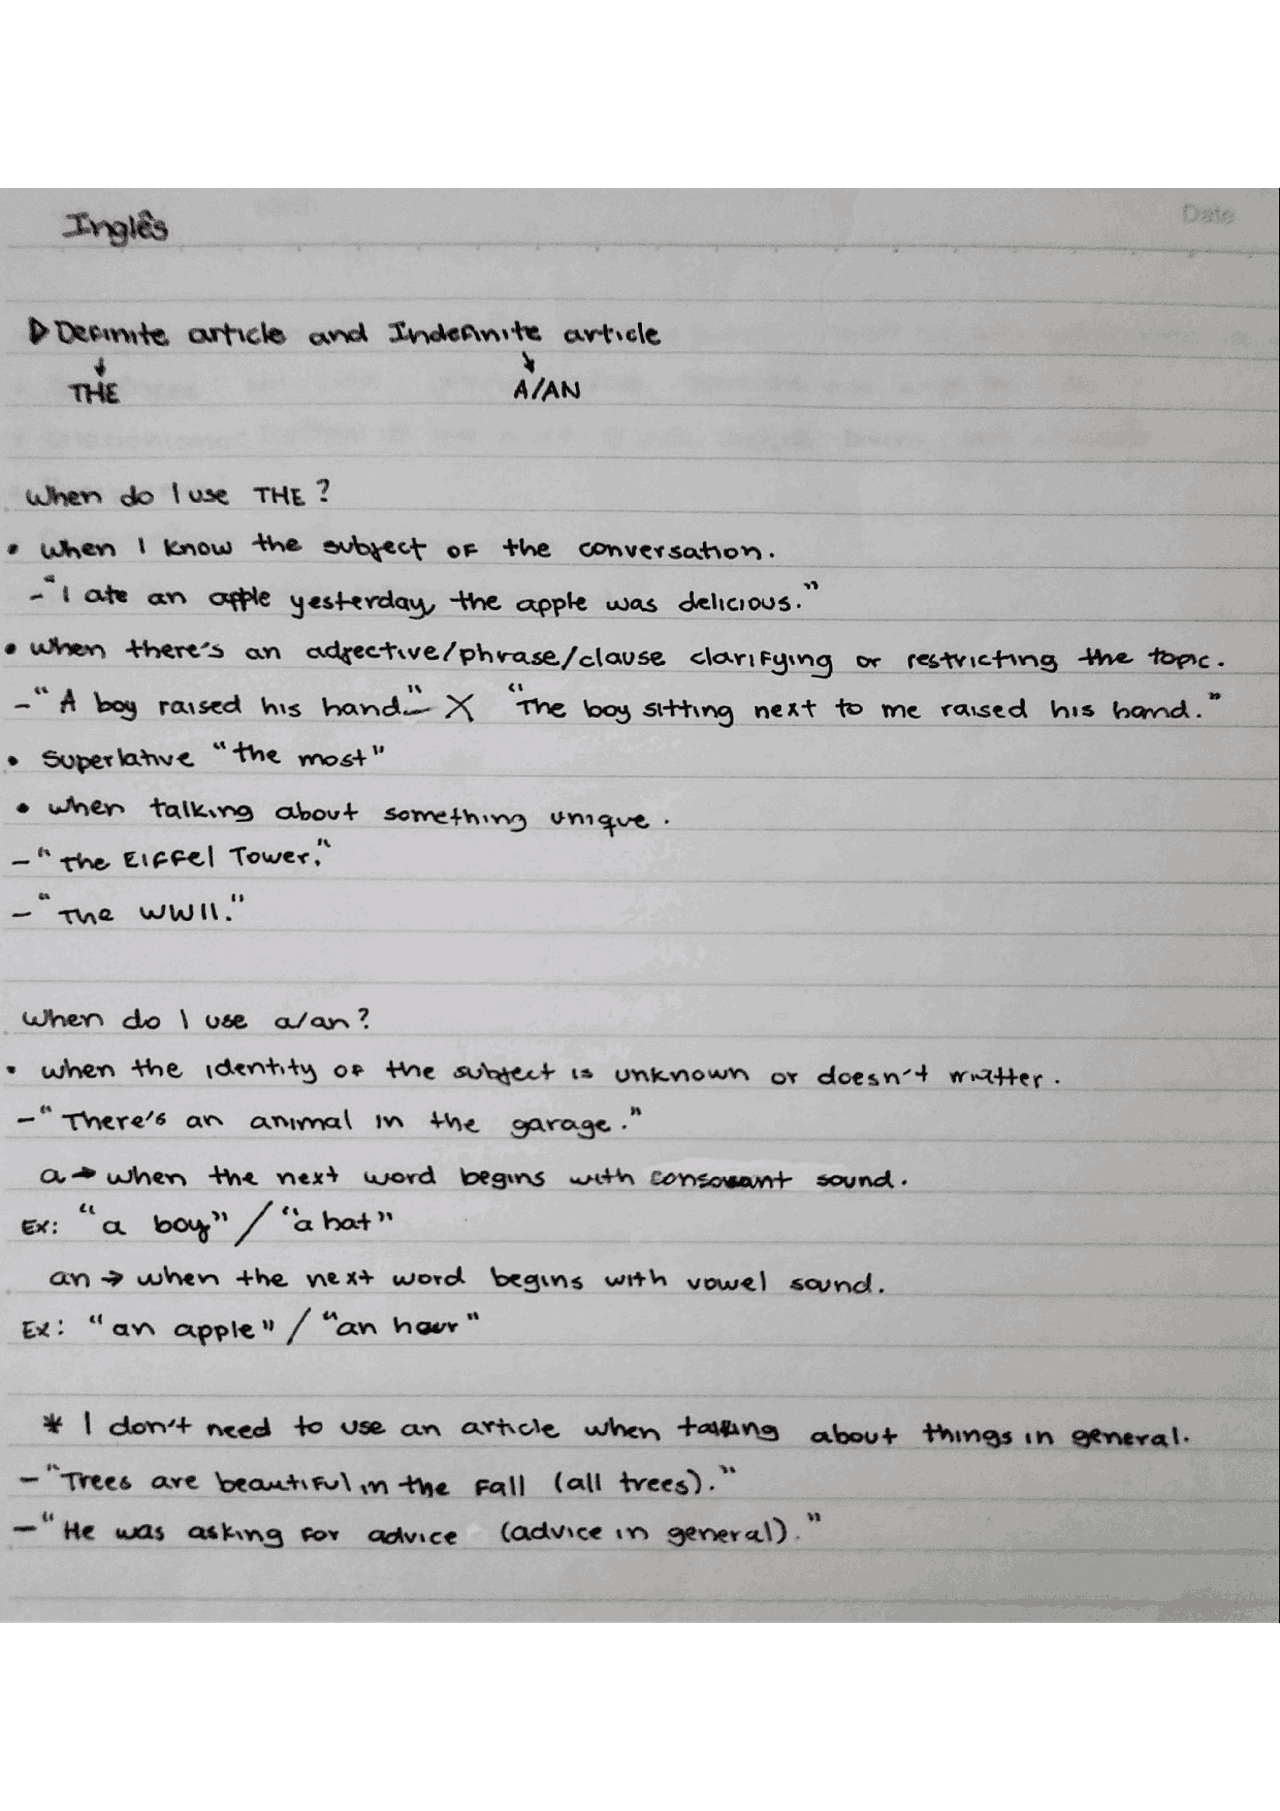 Inglês
Date
▷ Definite article and Indefinite article
↓ ↓
THE A/AN
When do I use THE?
• when I know the subject of the conversation.
- "I ate an apple yesterday, the apple was delicious."
• when there's an adjective/phrase/clause clarifying or restricting the topic.
- "A boy raised his hand." X "The boy sitting next to me raised his hand."
• Superlative "the most"
• when talking about something unique.
- "The Eiffel Tower."
- "The WWII."
When do I use a/an?
• when the identity of the subject is unknown or doesn't matter.
- "There's an animal in the garage."
a → when the next word begins with consonant sound.
Ex: "a boy" / "a hat"
an → when the next word begins with vowel sound.
Ex: "an apple" / "an hour"
* I don't need to use an article when talking about things in general.
- "Trees are beautiful in the Fall (all trees)."
- "He was asking for advice (advice in general)."